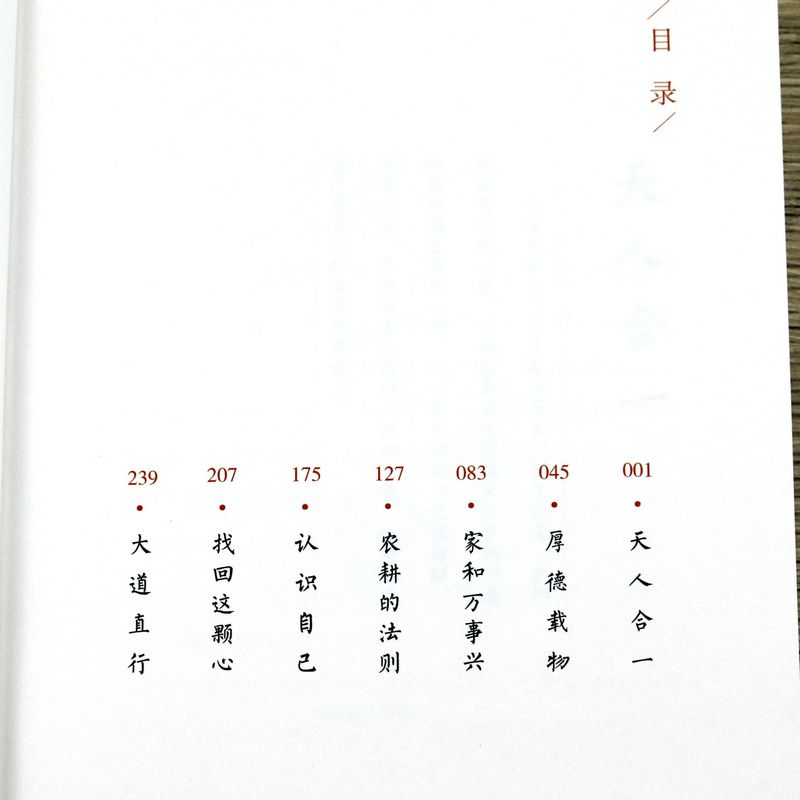 目录
001
天人合一
045
厚德载物
083
家和万事兴
127
农耕的法则
175
认识自己
207
找回这颗心
239
大道直行